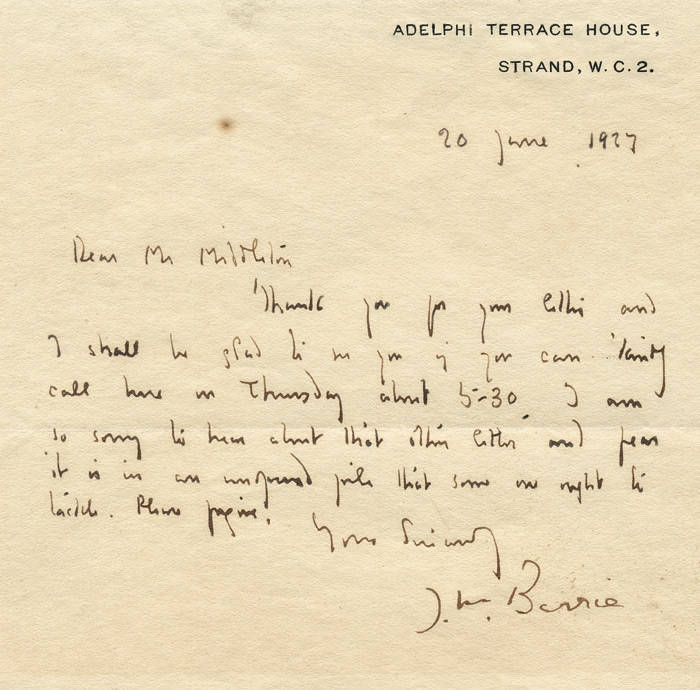 ADELPHI TERRACE HOUSE,
STRAND, W.C.2.
20 June 1927
Dear Mr Middleton
Thank you for your letter and
I shall be glad to see you if you can kindly
call here on Thursday about 5-30. I am
so sorry to hear about that other letter and fear
it is in an unopened pile that some one ought to
tackle. Please forgive.
Yours Sincerely
J. M. Barrie